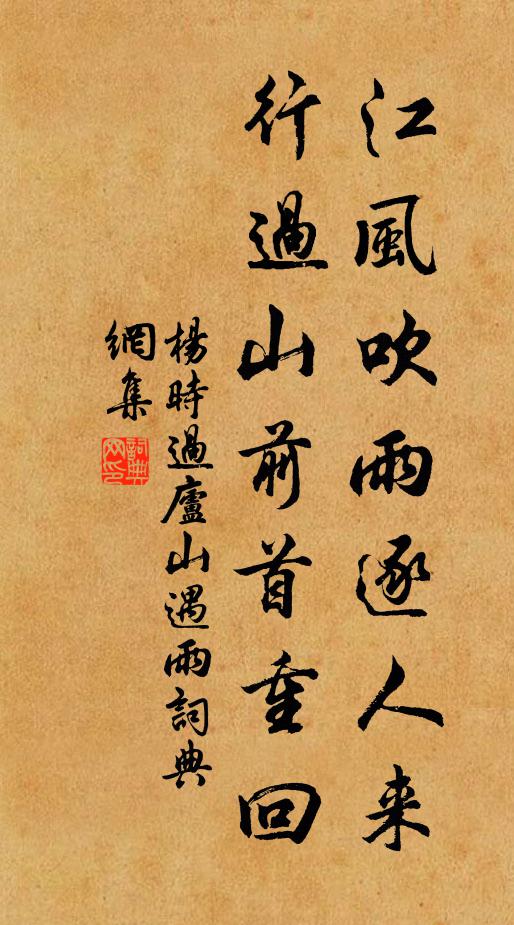 江風吹雨逐人来
行過山前首重回
楊時過廬山遇雨詞典
網集
詞典網印